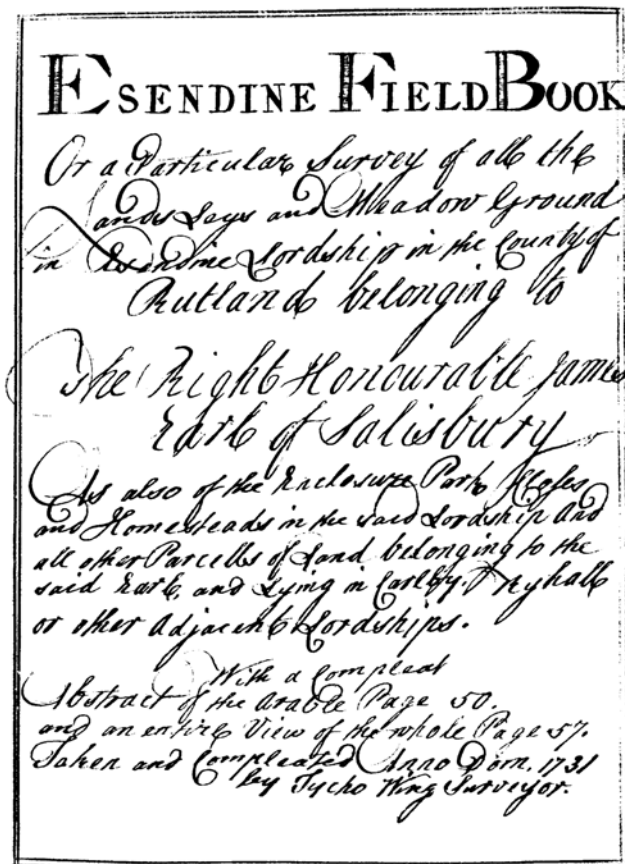 ESENDINE FIELD BOOK
Or a Particular Survey of all the
Lands Leys and Meadow Ground
in Esendine Lordship in the County of
Rutland belonging to
The Right Honourable James
Earl of Salisbury
As also of the Enclosure Park, Closes
and Homesteads in the said Lordship And
all other Parcells of Land belonging to the
said Earl and Lying in Carlby, Ryhall
or other Adjacent Lordships.
With a Compleat
Abstract of the Arable Page 50.
and an entire View of the whole Page 57.
Taken and Compleated Anno Dom. 1731
by Tycho Wing Surveyor.